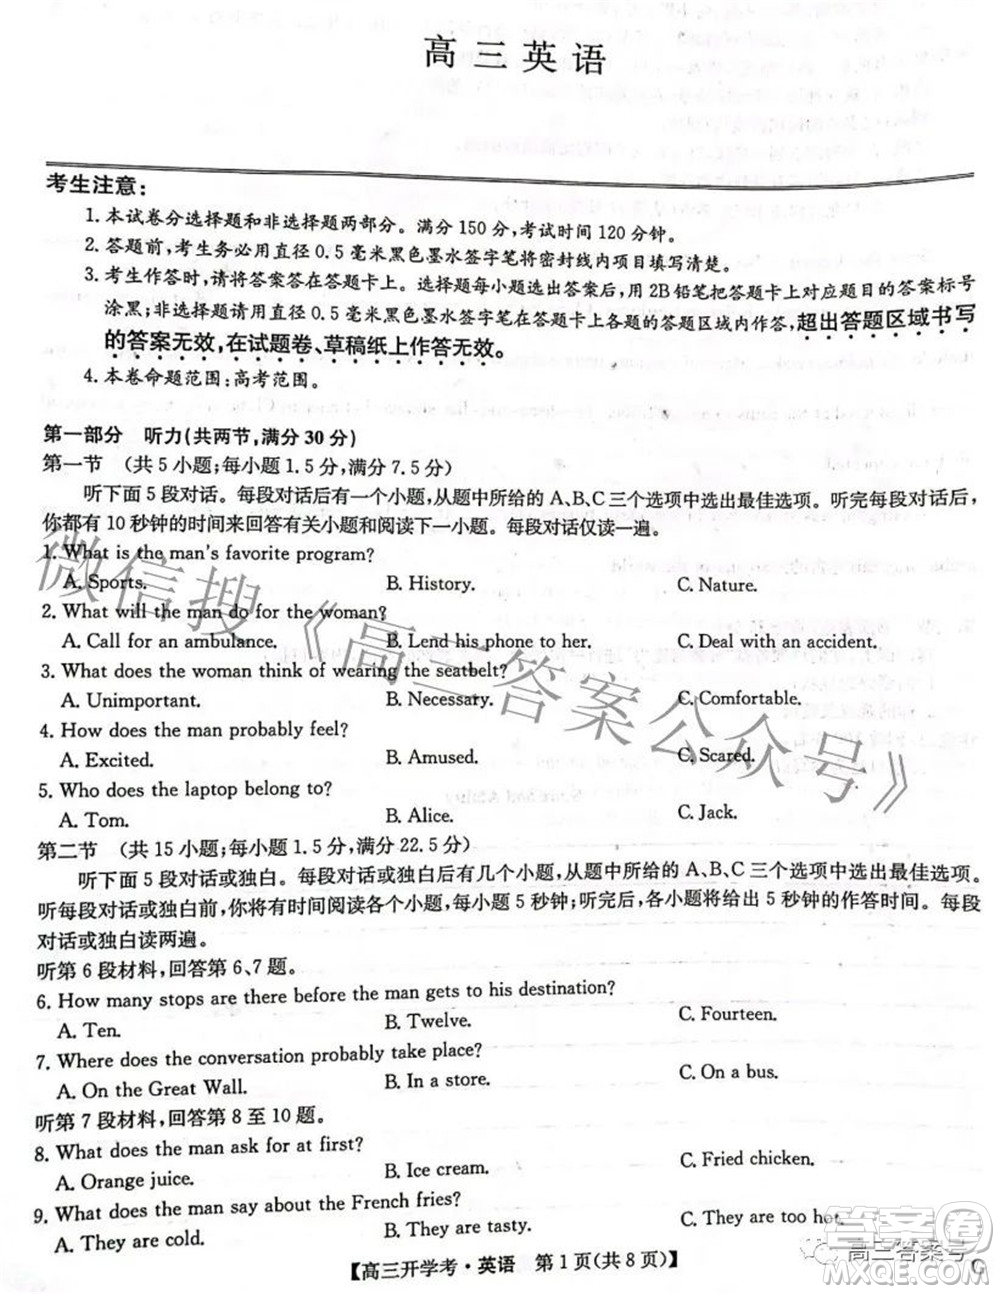 高三英语
考生注意:
1. 本试卷分选择题和非选择题两部分。满分 150 分,考试时间 120 分钟。
2. 答题前,考生务必用直径 0.5 毫米黑色墨水签字笔将密封线内项目填写清楚。
3. 考生作答时,请将答案答在答题卡上。选择题每小题选出答案后,用 2B 铅笔把答题卡上对应题目的答案标号
涂黑;非选择题请用直径 0.5 毫米黑色墨水签字笔在答题卡上各题的答题区域内作答,超出答题区域书写
的答案无效,在试题卷、草稿纸上作答无效。
4. 本卷命题范围:高考范围。
第一部分 听力(共两节,满分 30 分)
第一节 (共 5 小题;每小题 1.5 分,满分 7.5 分)
听下面 5 段对话。每段对话后有一个小题,从题中所给的 A、B、C 三个选项中选出最佳选项。听完每段对话后,
你都有 10 秒钟的时间来回答有关小题和阅读下一小题。每段对话仅读一遍。
1. What is the man's favorite program?
A. Sports. B. History. C. Nature.
2. What will the man do for the woman?
A. Call for an ambulance. B. Lend his phone to her. C. Deal with the accident.
3. What does the woman think of wearing the seatbelt?
A. Unimportant. B. Necessary. C. Comfortable.
4. How does the man probably feel?
A. Excited. B. Amused. C. Scared.
5. Who does the laptop belong to?
A. Tom. B. Alice. C. Jack.
第二节 (共 15 小题;每小题 1.5 分,满分 22.5 分)
听下面 5 段对话或独白。每段对话或独白后有几个小题,从题中所给的 A、B、C 三个选项中选出最佳选项。
听每段对话或独白前,你将有时间阅读各个小题,每小题 5 秒钟;听完后,各小题将给出 5 秒钟的作答时间。每段
对话或独白读两遍。
听第 6 段材料,回答第 6、7 题。
6. How many stops are there before the man gets to his destination?
A. Ten. B. Twelve. C. Fourteen.
7. Where does the conversation probably take place?
A. On the Great Wall. B. In a store. C. On a bus.
听第 7 段材料,回答第 8 至 10 题。
8. What does the man ask for at first?
A. Orange juice. B. Ice cream. C. Fried chicken.
9. What does the man say about the French fries?
A. They are cold. B. They are tasty. C. They are too hot.
【高三开学考·英语 第 1 页(共 8 页)】
G
微信搜《高三答案公众号》
高三答案号
答案圈
MXQE.COM